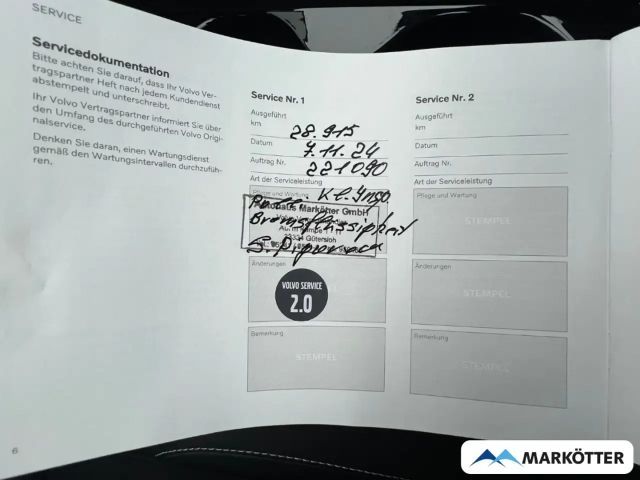 SERVICE
Servicedokumentation
Bitte achten Sie darauf, dass Ihr Volvo Ver-
tragspartner Heft nach jedem Kundendienst
abstempelt und unterschreibt.
Ihr Volvo Vertragspartner informiert Sie über
den Umfang des durchgeführten Volvo Origi-
nalservice.
Denken Sie daran, einen Wartungsdienst
gemäß den Wartungsintervallen durchzufüh-
ren.
6
Service Nr. 1
Ausgeführt
km 28.915
Datum 7.11.24
Auftrag Nr. 221090
Art der Serviceleistung
Pflege und Wartung
Autohaus Markötter GmbH
33334 Gütersloh
Bremsflüssigkeit
Änderungen
VOLVO SERVICE
2.0
Bemerkung
STEMPEL
Service Nr. 2
Ausgeführt
km
Datum
Auftrag Nr.
Art der Serviceleistung
Pflege und Wartung
STEMPEL
Änderungen
STEMPEL
Bemerkung
STEMPEL
MARKÖTTER